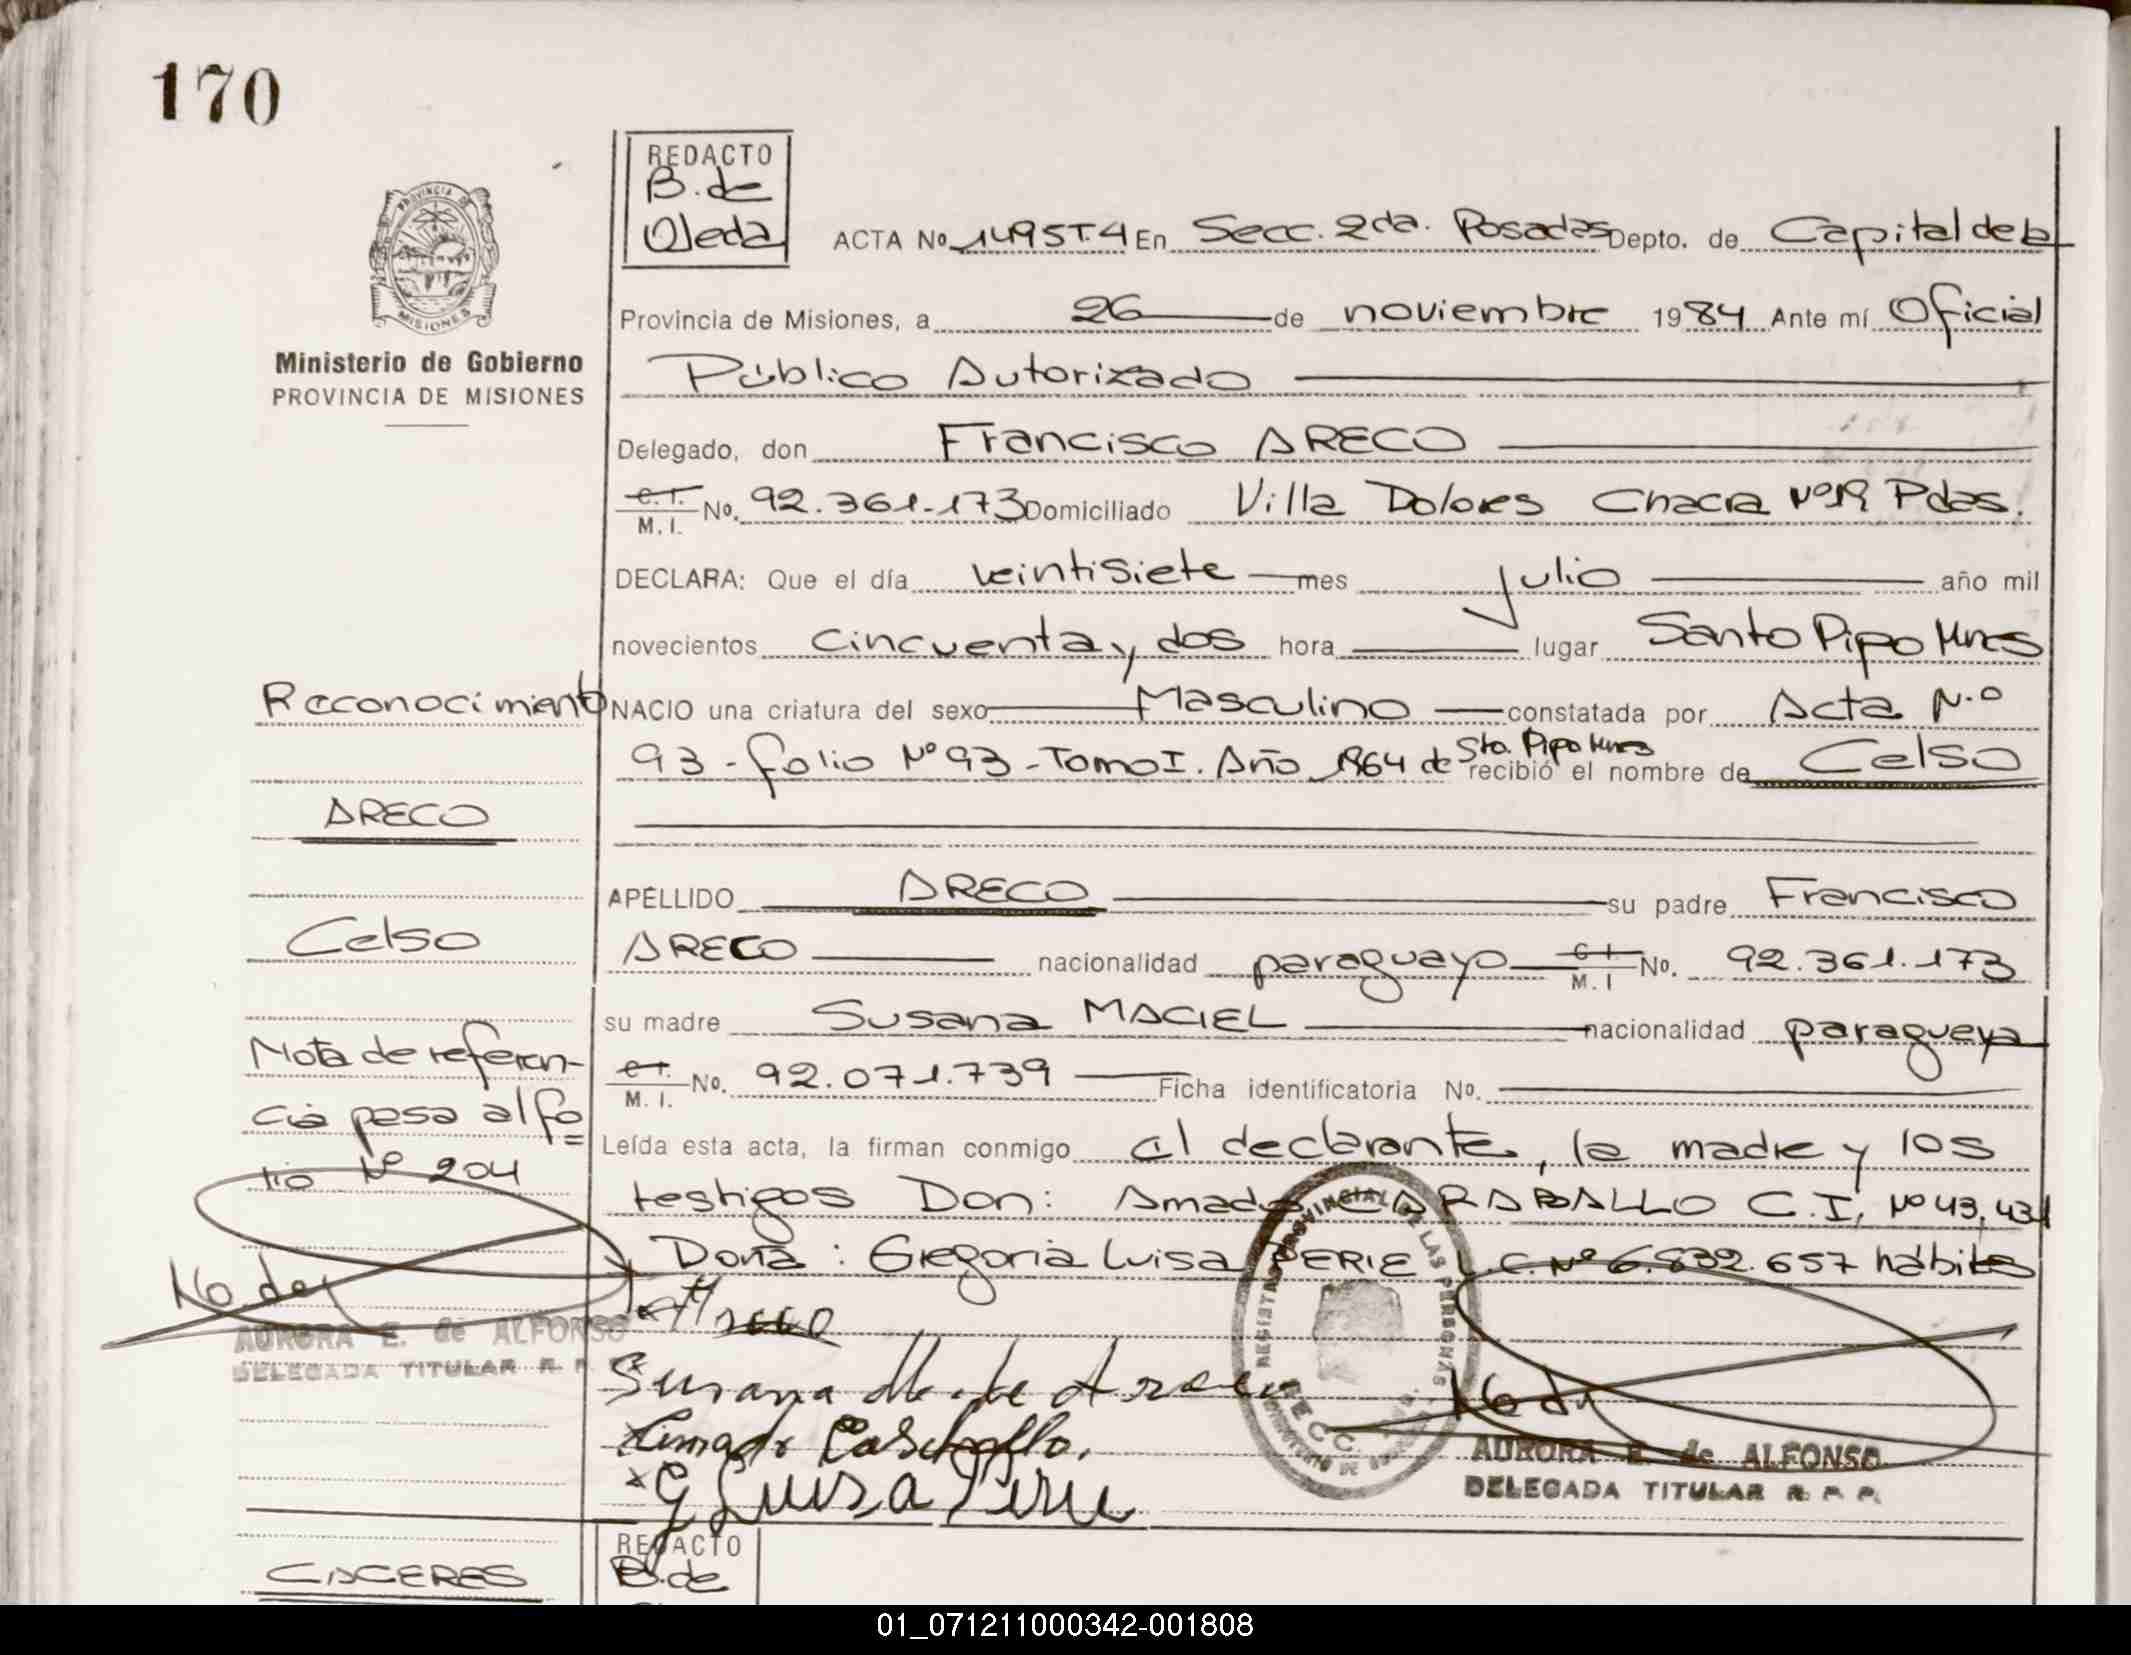 170
REDACTO
B. de
Ojeda
PROVINCIA DE
MISIONES
Ministerio de Gobierno
PROVINCIA DE MISIONES
ACTA No 1495T.4 En Secc. 2da. Posadas Depto. de Capital de la
Provincia de Misiones, a 26 de noviembre 1984 Ante mí Oficial
Público Autorizado
Delegado, don Francisco ARECO
C.I. M.I. No. 92.361.173 Domiciliado Villa Dolores Chacra Nº19 Pdas.
DECLARA: Que el día veintisiete mes julio año mil
novecientos cincuenta y dos hora lugar Santo Pipo Mnes
NACIO una criatura del sexo Masculino constatada por Acta N.º
93 - folio Nº 93 - Tomo I. Año 1964 de Sto. Pipo Mnes recibió el nombre de Celso
APELLIDO ARECO su padre Francisco
ARECO nacionalidad paraguayo C.I. M.I No. 92.361.173
su madre Susana MACIEL nacionalidad paragueya
C.I. M.I. No. 92.071.739 Ficha identificatoria No.
Leída esta acta, la firman conmigo el declarante, la madre y los
testigos Don: Amado CARABALLO C.I. Nº 43.431
Doña: Gregoria Luisa PERIE L.C. Nº 6.832.657 hábiles
Areco
Susana M. de Areco
Amado Caraballo.
G Luisa Perie
REGISTRO PROVINCIAL DE LAS PERSONAS
AURORA E. de ALFONSO
DELEGADA TITULAR R. P. P.
Reconocimiento
ARECO
Celso
Nota de referen-
cia pasa al fo=
lio Nº 204
AURORA E. de ALFONSO
DELEGADA TITULAR R. P.
CACERES
REDACTO
B. de
01_071211000342-001808